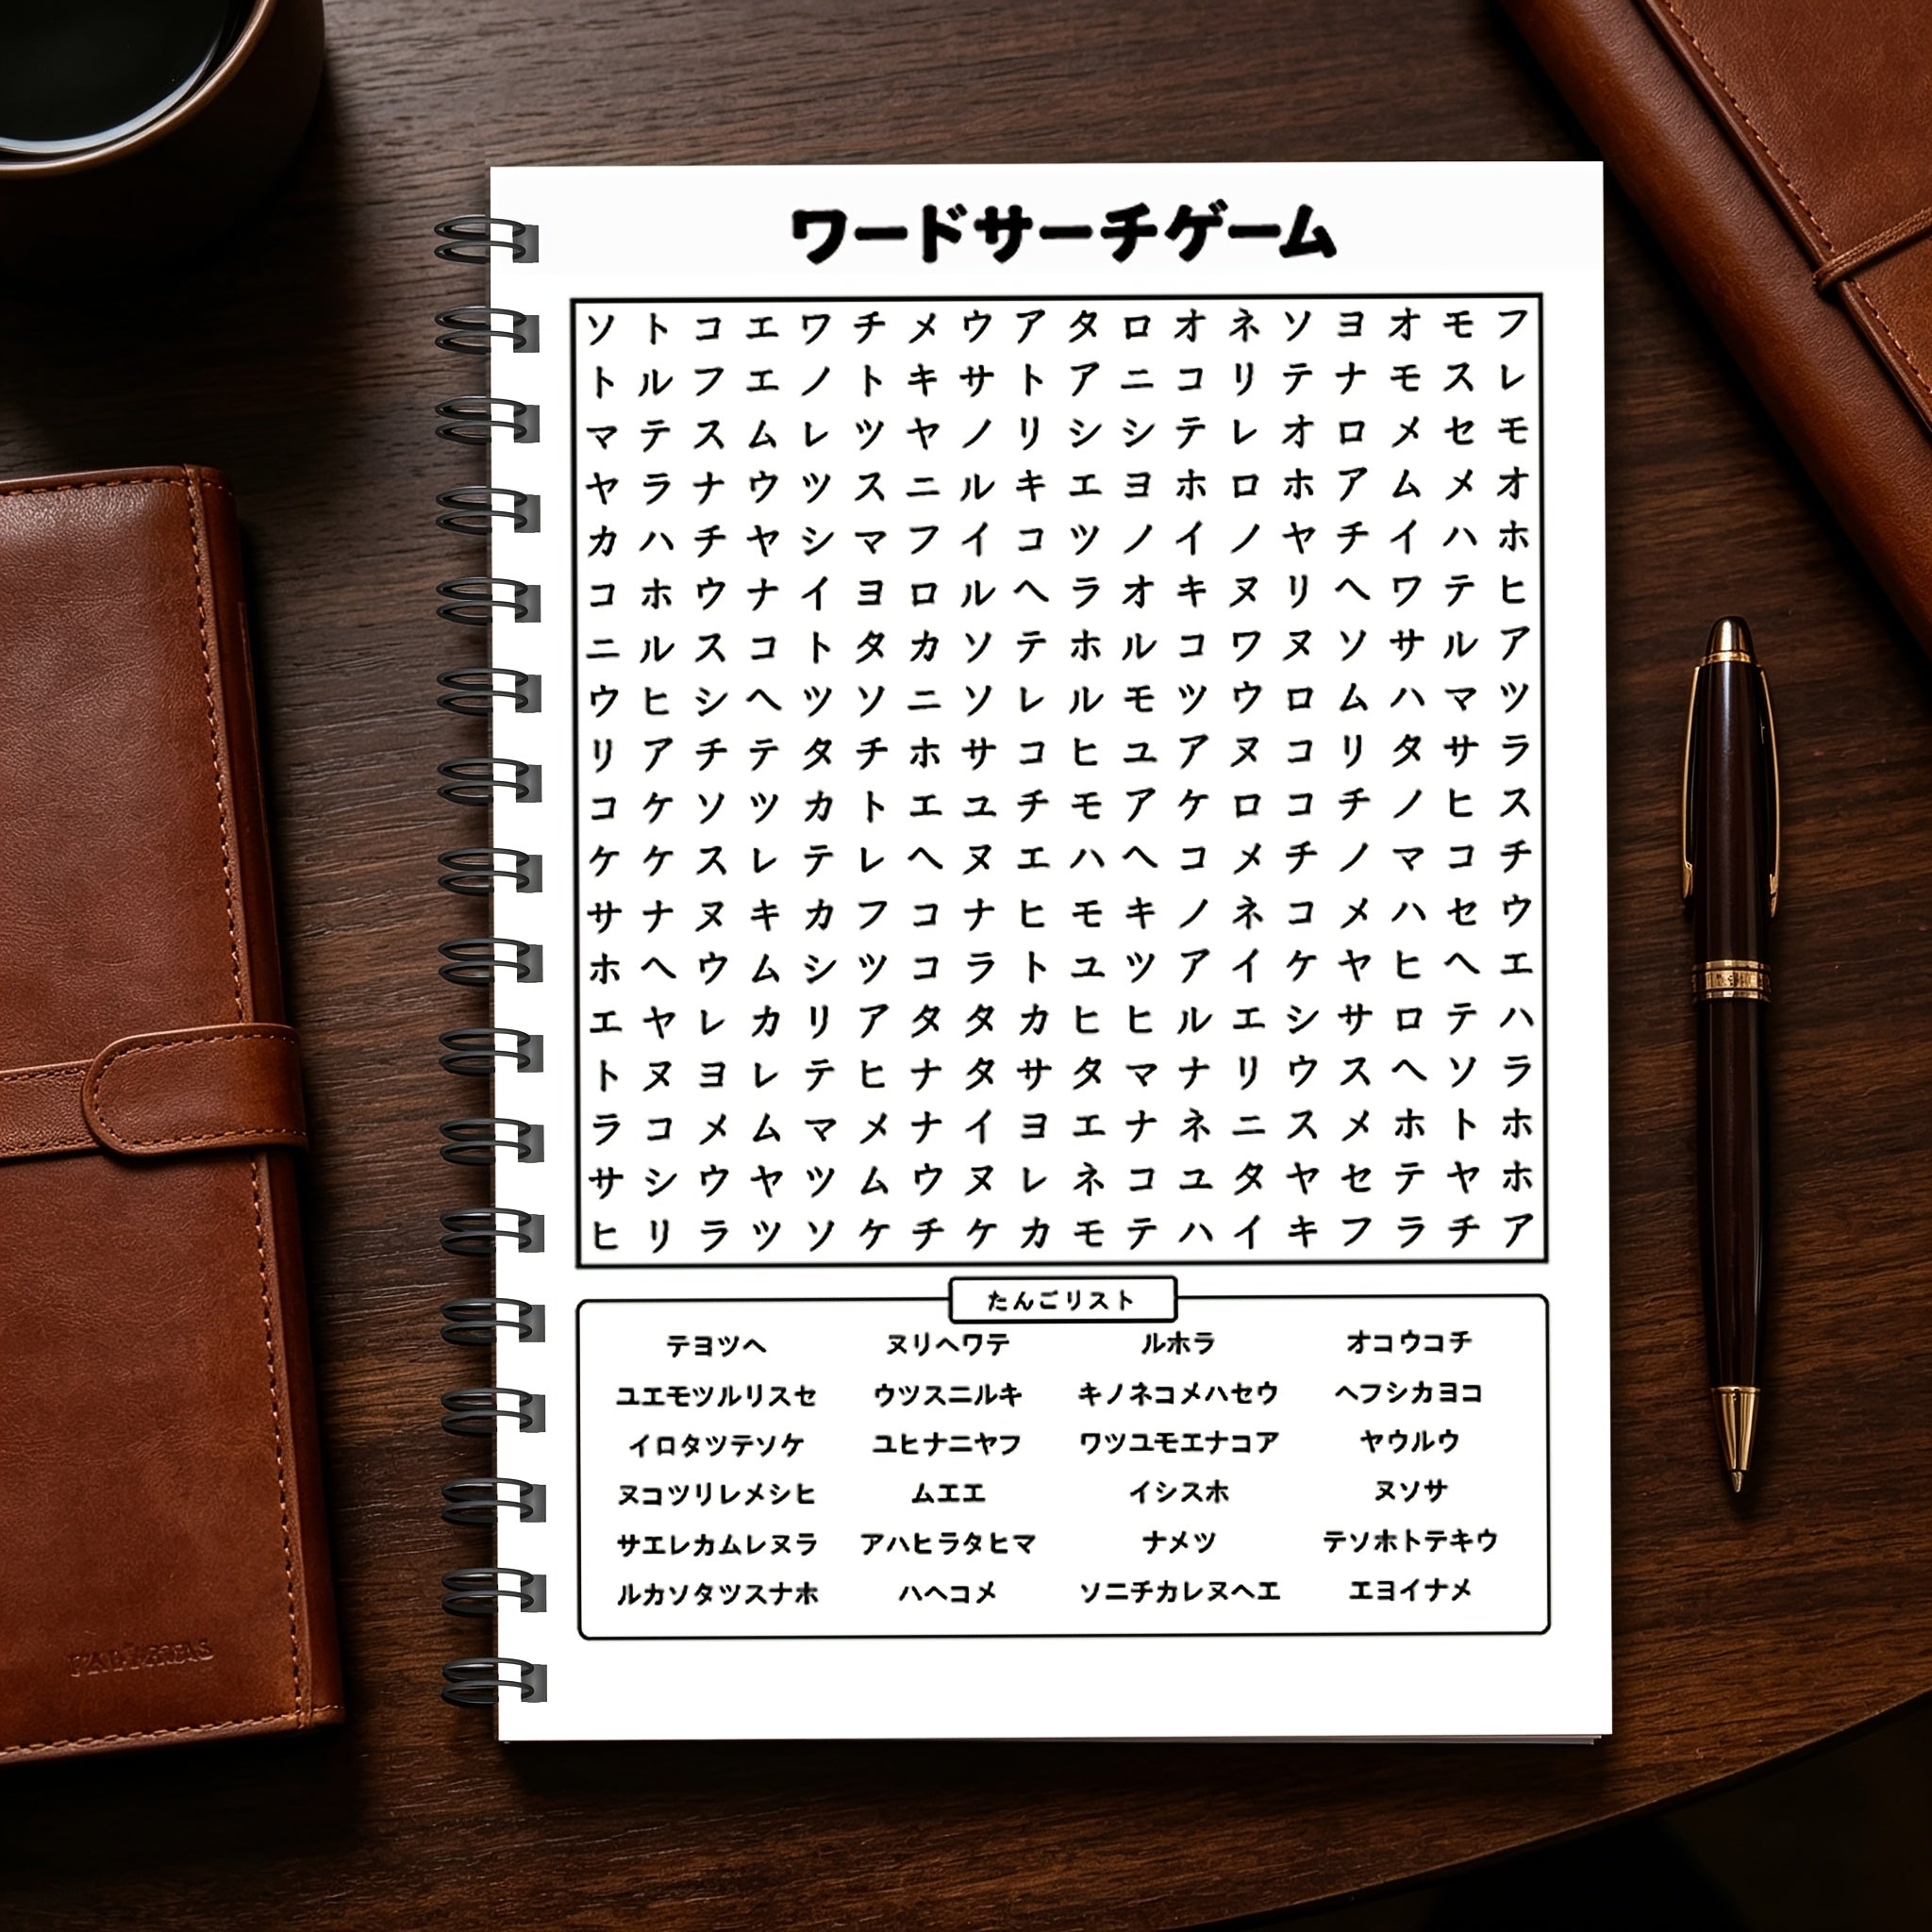 ワードサーチゲーム
ソ ト コ エ ワ チ メ ウ ア タ ロ オ ネ ソ ヨ オ モ フ
ト ル フ エ ノ ト キ サ ト ア ニ コ リ テ ナ モ ス レ
マ テ ス ム レ ツ ヤ ノ リ シ シ テ レ オ ロ メ セ モ
ヤ ラ ナ ウ ツ ス ニ ル キ エ ヨ ホ ロ ホ ア ム メ オ
カ ハ チ ヤ シ マ フ イ コ ツ ノ イ ノ ヤ チ イ ハ ホ
コ ホ ウ ナ イ ヨ ロ ル ヘ ラ オ キ ヌ リ ヘ ワ テ ヒ
ニ ル ス コ ト タ カ ソ テ ホ ル コ ワ ヌ ソ サ ル ア
ウ ヒ シ ヘ ツ ソ ニ ソ レ ル モ ツ ウ ロ ム ハ マ ツ
リ ア チ テ タ チ ホ サ コ ヒ ユ ア ヌ コ リ タ サ ラ
コ ケ ソ ツ カ ト エ ユ チ モ ア ケ ロ コ チ ノ ヒ ス
ケ ケ ス レ テ レ ヘ ヌ エ ハ ヘ コ メ チ ノ マ コ チ
サ ナ ヌ キ カ フ コ ナ ヒ モ キ ノ ネ コ メ ハ セ ウ
ホ ヘ ウ ム シ ツ コ ラ ト ユ ツ ア イ ケ ヤ ヒ ヘ エ
エ ヤ レ カ リ ア タ タ カ ヒ ヒ ル エ シ サ ロ テ ハ
ト ヌ ヨ レ テ ヒ ナ タ サ タ マ ナ リ ウ ス ヘ ソ ラ
ラ コ メ ム マ メ ナ イ ヨ エ ナ ネ ニ ス メ ホ ト ホ
サ シ ウ ヤ ツ ム ウ ヌ レ ネ コ ユ タ ヤ セ テ ヤ ホ
ヒ リ ラ ツ ソ ケ チ ケ カ モ テ ハ イ キ フ ラ チ ア
たんごリスト
テヨツヘ ヌリヘワテ ルホラ オコウコチ
ユエモツルリスセ ウツスニルキ キノネコメハセウ ヘフシカヨコ
イロタツテソケ ユヒナニヤフ ワツユモエナコア ヤウルウ
ヌコツリレメシヒ ムエエ イシスホ ヌソサ
サエレカムレヌラ アハヒラタヒマ ナメツ テソホトテキウ
ルカソタツスナホ ハヘコメ ソニチカレヌヘエ エヨイナメ